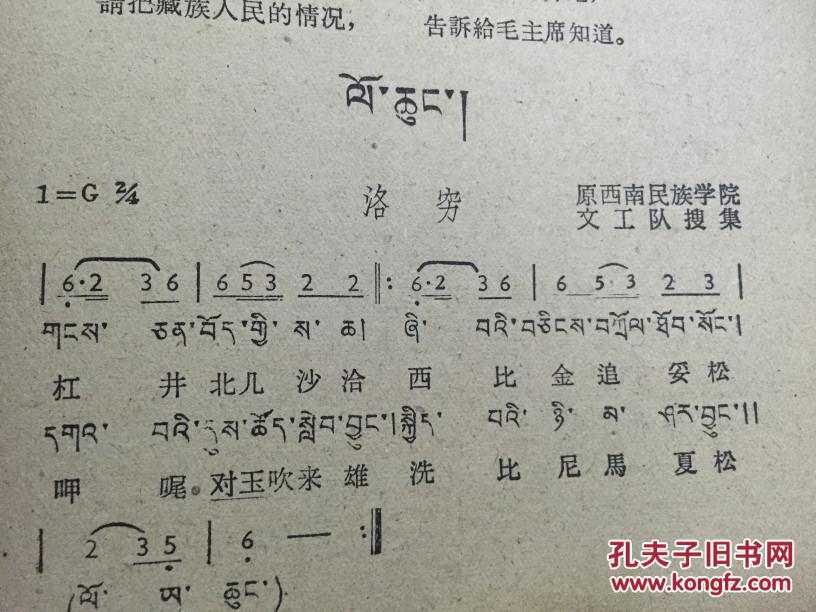 請把藏族人民的情况，
告訴給毛主席知道。
ལོ་ཆུང་།
1=G 2/4
洛 穷
原西南民族学院
文工队搜集
| 6·2 3 6 | 6 5 3 2 2 ‖: 6·2 3 6 | 6 5 3 2 3 |
གངས་ ཅན་བོད་ཀྱི་ ས་ ཆ། ཞི་ བའི་བཅིངས་བཀྲོལ་ཐོབ་སོང་།
杠 井 北几 沙 洽 西 比 金 追 妥 松
དགའ་ བའི་དུས་ཚོད་སླེབ་བྱུང་།སྐྱིད་ བའི་ ཉི་ མ་ ཤར་བྱུང་།།
呷 呢。对玉吹来雄 洗 比 尼 馬 夏 松
| 2 3 5 | 6 — :‖
(ལོ་ ཡ་ ཆུང་)
孔夫子旧书网
www.kongfz.com